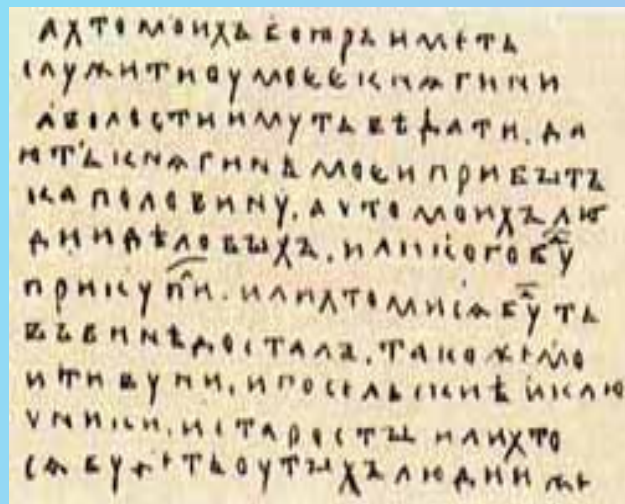 а хто моихъ боıаръ иметь
служити оу моее кнѧгини
а волости имуть вѣдати. да
ють кнѧгинѣ моеи прибытъ
ка половину. а что моихъ лю
дии дѣловыхъ. или кого буд
прикупил. или хто ми сѧ будть
въ винѣ досталъ. такоже мо
и тивуни. и посельскиѣ и клю
чники. и старосты или хто
сѧ будеть оу тыхъ людии же